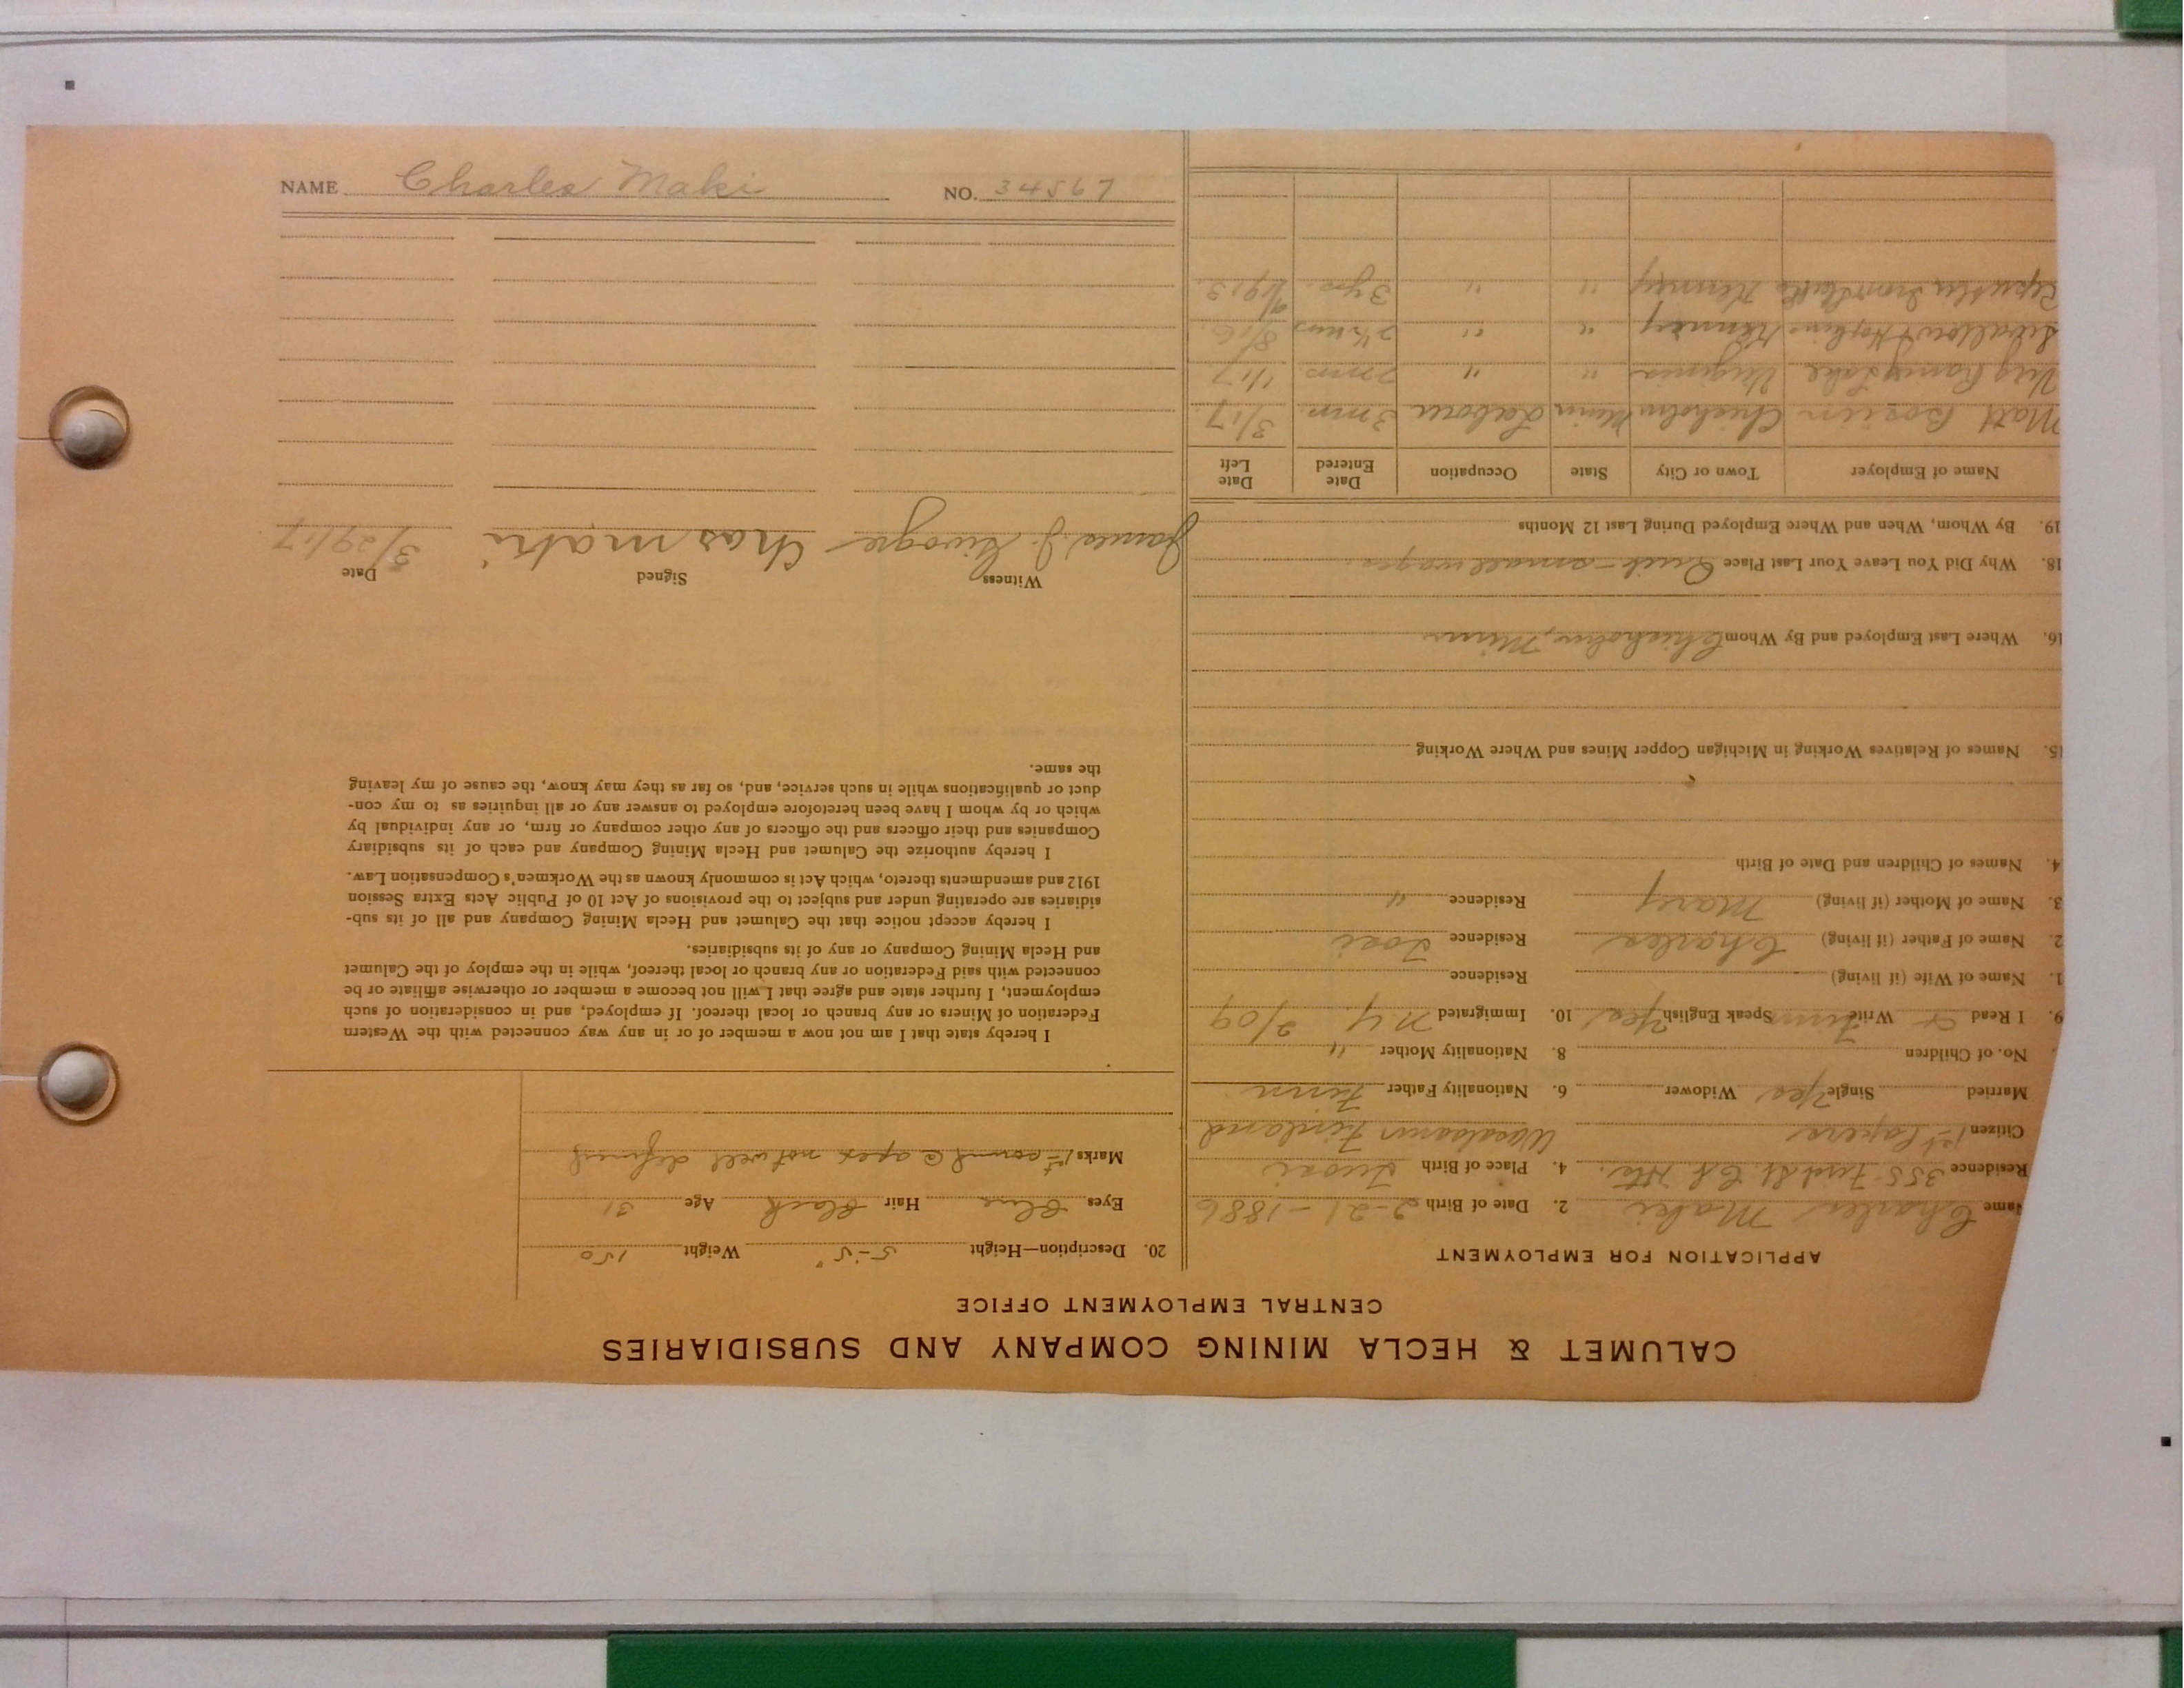 CALUMET & HECLA MINING COMPANY AND SUBSIDIARIES
CENTRAL EMPLOYMENT OFFICE
APPLICATION FOR EMPLOYMENT
Name Charles Maki 2. Date of Birth 2-21-1886
Residence 355 St. 4. Place of Birth
Citizen 1st Papers Finland
Married Single Yes Widower 6. Nationality Father Finn
No. of Children 8. Nationality Mother "
9. I Read & Write Finn Speak English Yes 10. Immigrated N.Y. 2/09
1. Name of Wife (if living) Residence
2. Name of Father (if living) Charles Residence
3. Name of Mother (if living) Mary Residence "
4. Names of Children and Date of Birth
15. Names of Relatives Working in Michigan Copper Mines and Where Working
16. Where Last Employed and By Whom Chisholm, Minn
18. Why Did You Leave Your Last Place Quit - small wages.
19. By Whom, When and Where Employed During Last 12 Months
Name of Employer Town or City State Occupation Date Entered Date Left
Matt Chisholm Minn Labour 3 mos. 3/17.
Virg Rainy Lake Virginia " " 2 mos. 1/17
Swallow & Hopkins " " 2½ mos 8/16.
" " 3 yrs. 9/1913.
20. Description—Height 5-5" Weight 150
Eyes Blue Hair Black Age 31
Marks 1st @ apex not well defined
I hereby state that I am not now a member of or in any way connected with the Western
Federation of Miners or any branch or local thereof. If employed, and in consideration of such
employment, I further state and agree that I will not become a member or otherwise affiliate or be
connected with said Federation or any branch or local thereof, while in the employ of the Calumet
and Hecla Mining Company or any of its subsidiaries.
I hereby accept notice that the Calumet and Hecla Mining Company and all of its sub-
sidiaries are operating under and subject to the provisions of Act 10 of Public Acts Extra Session
1912 and amendments thereto, which Act is commonly known as the Workmen's Compensation Law.
I hereby authorize the Calumet and Hecla Mining Company and each of its subsidiary
Companies and their officers and the officers of any other company or firm, or any individual by
which or by whom I have been heretofore employed to answer any or all inquiries as to my con-
duct or qualifications while in such service, and, so far as they may know, the cause of my leaving
the same.
Witness Signed Date
James J. Chas maki 3/29/17
NAME Charles Maki NO. 34567